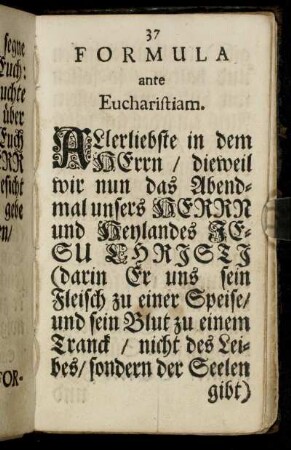 segne
Euch:
uchte
über
Euch
ERR
esicht
gebe
en/
FOR-
37
FORMULA
ante
Eucharistiam.
ALlerliebste in dem
HErrn / dieweil
wir nun das Abend-
mal unsers HERRN
und Heylandes JE-
SU CHRISTI
(darin Er uns sein
Fleisch zu einer Speise/
und sein Blut zu einem
Tranck / nicht des Lei-
bes/ sondern der Seelen
gibt)